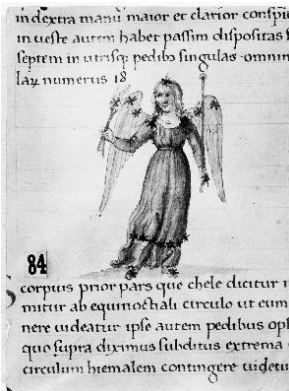 in dextra manu maior et clarior conspi
in ueste autem habet passim dispositas
septem in utrisq; pedib; singulas omnin
laꝝ numerus 18
84
Scorpius prior pars que chele dicitur
mitur ab equinoctiali circulo ut eum
nere uideatur ipse autem pedibus oph
quo supra diximus subditus extrema
circulum hiemalem contingere uidetu